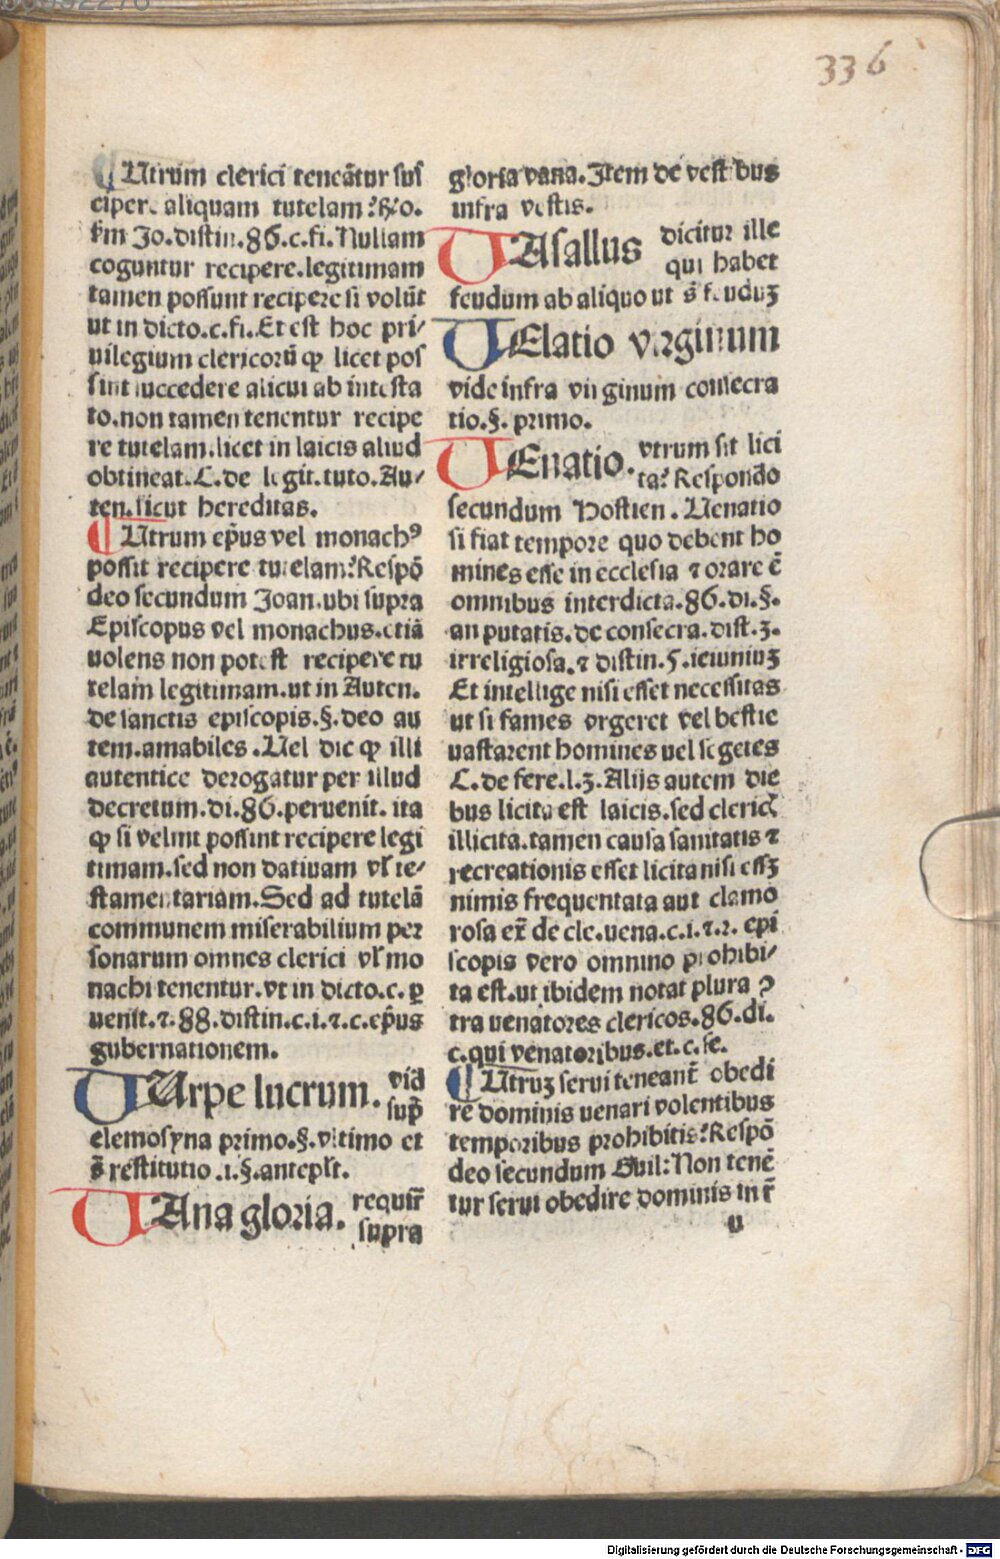 336
¶ Utrum clerici teneātur suſ
cipere aliquam tutelam? R̄o.
ſm Jo. diſtin. 86. c. fi. Nullam
coguntur recipere. legitimam
tamen poſſunt recipere ſi volūt
ut in dicto. c. fi. Et eſt hoc pri/
uilegium clericorū ꝙ licet poſ
ſint ſuccedere alicui ab inteſta
to. non tamen tenentur recipe
re tutelam. licet in laicis aliud
obtineat. C. de legit. tuto. Au/
ten. ſicut hereditas.
¶ Utrum ep̄us vel monachꝰ
poſſit recipere tutelam? Reſpō
deo ſecundum Joan. ubi ſupra
Epiſcopus vel monachus. etiā
uolens non poteſt recipere tu
telam legitimam. ut in Auten.
de ſanctis epiſcopis. §. deo au
tem. amabiles. Vel dic ꝙ illi
autentice derogatur per illud
decretum. di. 86. peruenit. ita
ꝙ ſi velint poſſint recipere legi
timam. ſed non datiuam vl̄ te/
ſtamentariam. Sed ad tutelā
communem miſerabilium per
ſonarum omnes clerici vl̄ mo
nachi tenentur. vt in dicto. c. ꝑ
uenit. ⁊. 88. diſtin. c. i. ⁊. c. ep̄us
gubernationem.
TUrpe lucrum. vid̄
ſup̄
elemoſyna primo. §. vltimo et
s̄ reſtitutio. i. §. antepl̄t.
VAna gloria. requir̄
ſupra
gloria vana. Item de veſtibus
infra veſtis.
VAſallus dicitur ille
qui habet
feudum ab aliquo ut s̄ feuduꝫ
VElatio virginum
vide infra virginum conſecra
tio. §. primo.
VEnatio. vtrum ſit lici
ta? Reſpondō
ſecundum Hoſtien. Uenatio
ſi fiat tempore quo debent ho
mines eſſe in eccleſia ⁊ orare ē
omnibus interdicta. 86. di. §.
an putatis. de conſecra. diſt. 3.
irreligioſa. ⁊ diſtin. 5. ieiuniuꝫ
Et intellige niſi eſſet neceſſitas
ut ſi fames vrgeret vel beſtie
uaſtarent homines uel ſegetes
C. de fere. l. 3. Alijs autem die
bus licita eſt laicis. ſed clericꝭ
illicita. tamen cauſa ſanitatis ⁊
recreationis eſſet licita niſi eſſꝫ
nimis frequentata aut clamo
roſa ex̄ de cle. uena. c. i. ⁊. 2. epi
ſcopis vero omnino prohibi/
ta eſt. ut ibidem notat plura ꝯ
tra uenatores clericos. 86. di.
c. qui venatoribus. et. c. ſe.
¶ Utruꝫ ſerui teneant̄ obedi
re dominis uenari volentibus
temporibus prohibitis? Reſpō
deo ſecundum Guil: Non tenē
tur ſerui obedire dominis in r̄
u
Digitalisierung gefördert durch die Deutsche Forschungsgemeinschaft - DFG